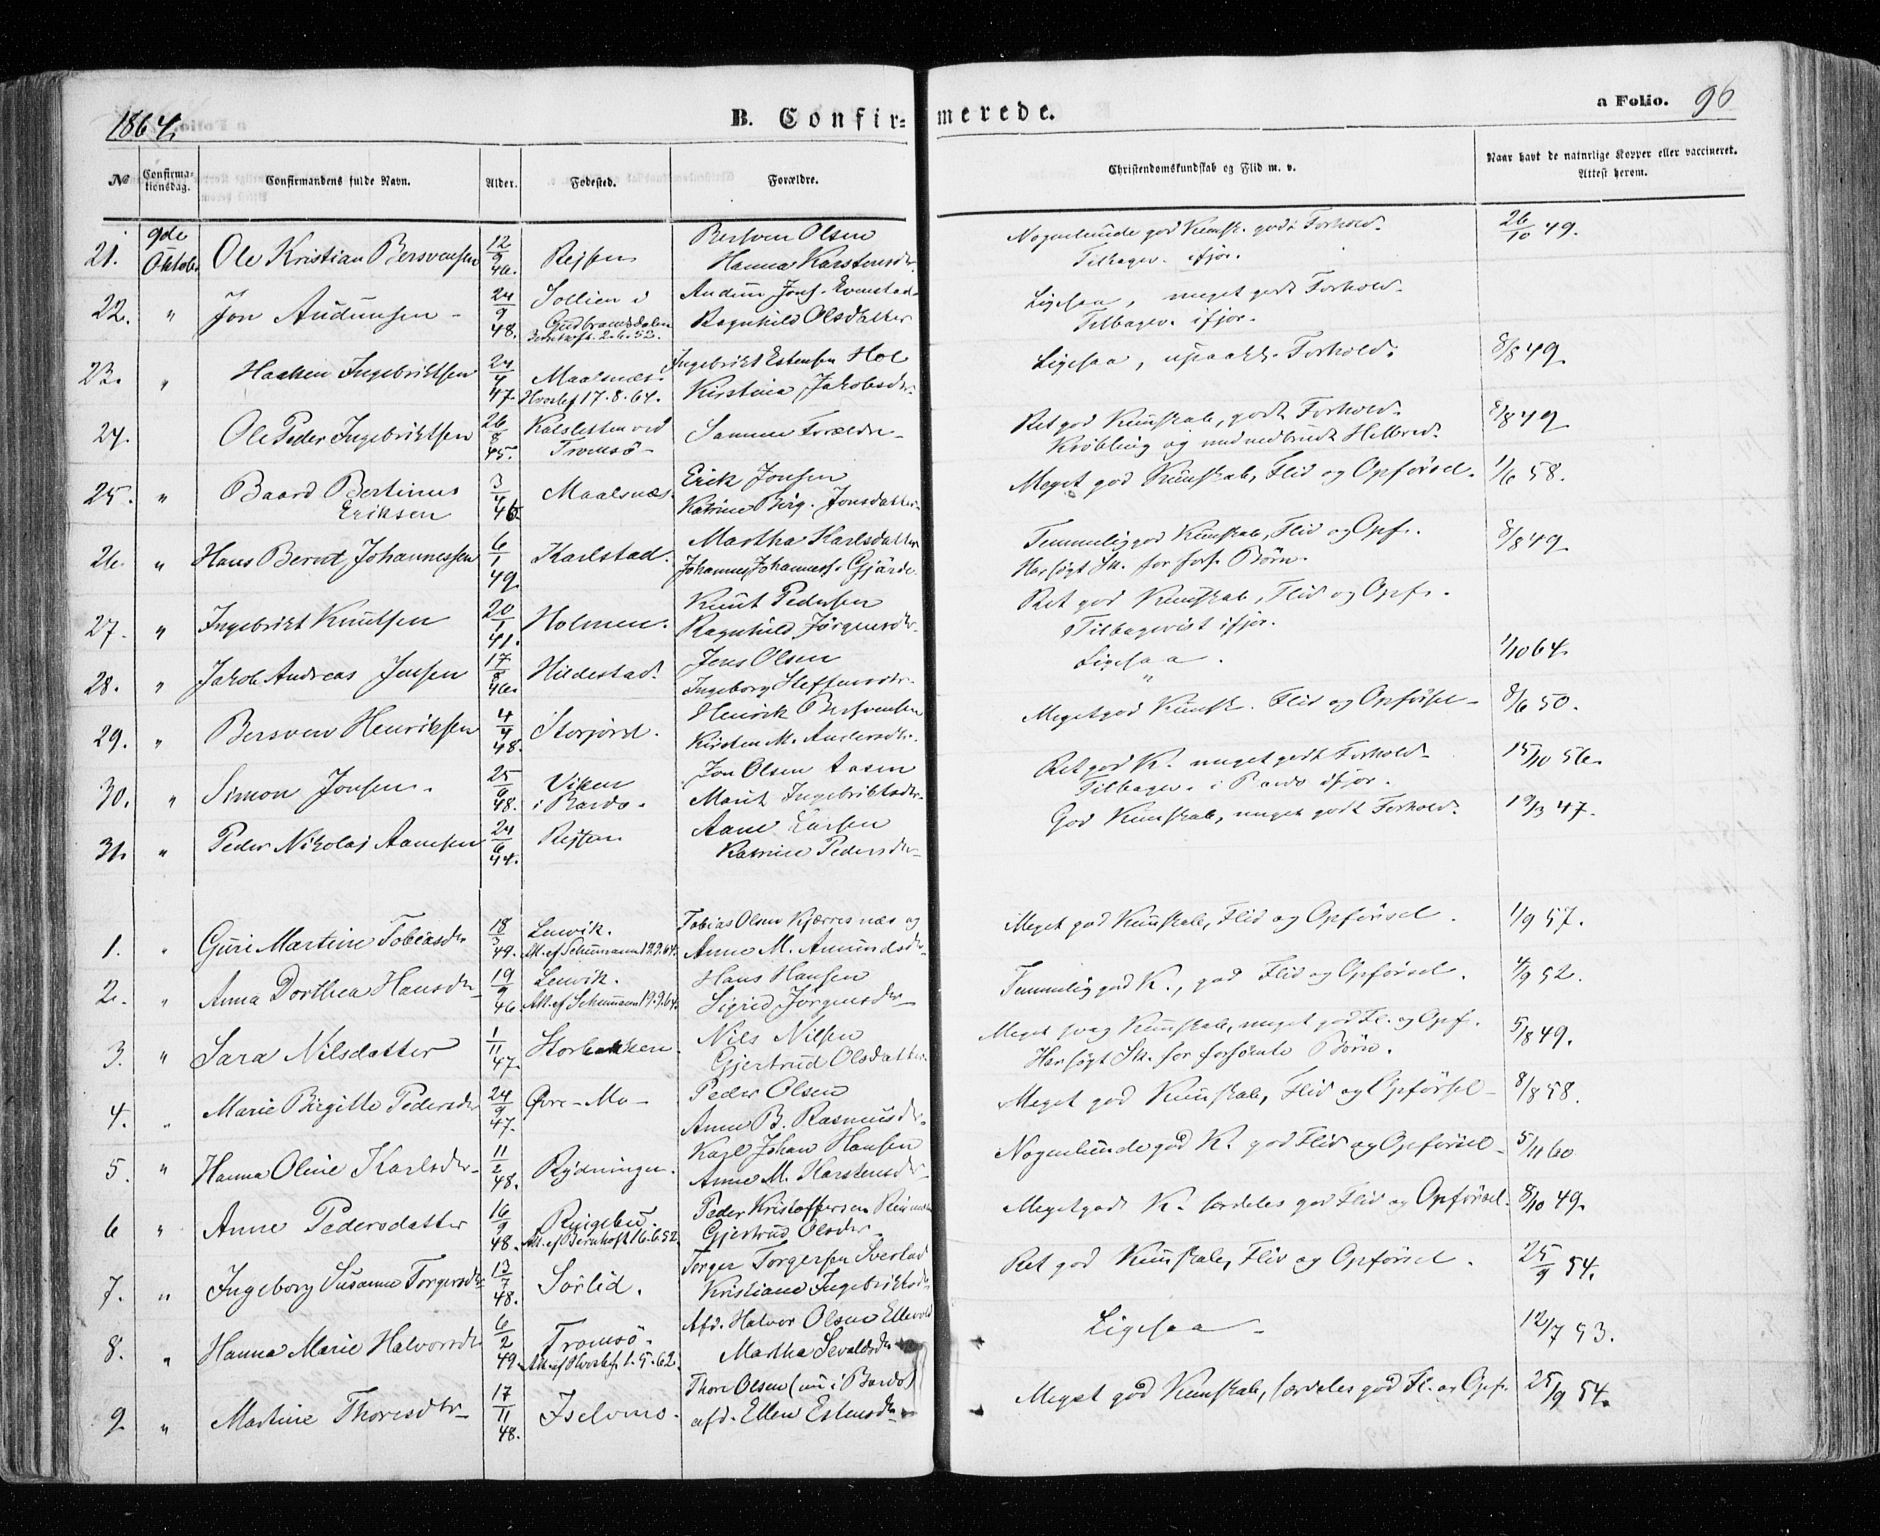 1864.
B. Confir= merede.
a Folio. 96
No Confirma-tionsdag. Confirmandens fulde Navn. Alder. Fødested. Forældre. Christendomskundskab og Flid m. v. Naar havt de naturlige Kopper eller vaccineret. Attest herom.
21. 9de Oktobr Ole Kristian Bersvensen 12/9 46. Rejsen Bersven Olsen Nogenlunde god Kunsk. godt Forhold. 26/10 49.
Hanna Karstensdr. Tilbagev. ifjor.
22. " Jon Audunsen 24/9 48. Sollien i Audun Jons. Evenstad Ligesaa, meget godt Forhold.
Gudbrandsdalen Ragnhild Olsdatter Tilbagev. ifjor.
2.6.52.
23. " Haaken Ingebriktsen 24/4 47. Maalsnæs. Ingebrikt Estensen Hol Ligesaa, upaakl. Forhold. 8/8 49.
Hvoslef 17.8.64. Kirstina Jakobsdr.
24. Ole Peder Ingebriktsen 26/8 45. ved Samme Forældre Ret god Kunskab, godt Forhold. 8/8 49
Tromsö Krøbling og nedbrudt Helbred.
25. " Baard Bertinus 3/4 46 Maalsnæs. Erik Jonsen Meget god Kunskab, Flid og Opførsel. 1/6 58.
Eriksen Katrine Birg. Jonsdatter
26. " Hans Bernt Johannessen 6/1 49. Karlstad. Martha Karlsdatter Temmelig god Kunskab, Flid og Opf. 8/8 49.
Johannes Johanness. Gjärde Har søgt Sk. for fors. Børn.
27. " Ingebrikt Knutsen 20/1 41. Holmen. Knut Pedersen Ret god Kunskab, Flid og Opf.
Ragnhild Jørgensdr. Tilbagevist ifjor.
28. " Jakob Andreas Jensen 17/8 46. Hildestad. Jens Olsen Ligesaa. 1/10 64.
Ingeborg Steffensdr. "
29. " Bersven Henriksen 4/4 48. Storjord. Henrik Bersvensen Meget god Kunsk. Flid og Opførsel 8/6 50.
Kirsten M. Andersdr.
30. " Simon Jonsen. 25/6 48. Viken Jon Olsen Aasen Ret god K. meget godt Forhold 15/10 56.
i Bardo. Marit Ingebriktsdr. Tilbagev. i Bardo ifjor.
31. " Peder Nikolai Aamesen 24/6 44. Rejsen Aane Larsen God Kunskab, meget godt Forhold. 19/3 47.
Katrine Pedersdr.
1. " Guri Martine Tobiasdr 18/3 49. Lenvik. Tobias Olsen Kjærresnæs og Meget god Kunskab, Flid og Opførsel. 1/9 57.
Att. af Schümann 19.9.64. Anne M. Amundsdr.
2. " Anna Dorthea Hansdr 19/9 46. Lenvik. Hans Hansen Temmelig god K., god Flid og Opførsel. 4/9 52.
Att. af Schümann 19.9.64. Sigrid Jørgensdr
3. " Sara Nilsdatter 1/11 47. Storbakken. Nils Nilsen Meget svag Kunskab, meget god Fl. og Opf. 5/8 49.
Gjertrud Olsdatter Har søgt Sk. for forsömte Börn.
4. " Marie Birgitte Pedersdr 24/9 47. Øvre-Mo Peder Olsen Meget god Kunskab, Flid og Opførsel 8/8 58.
Anne B. Rasmusdr.
5. " Hanna Oline Karlsdr 11/2 48. Rydningen. Karl Johan Hansen Nogenlunde god K. god Flid og Opførsel 5/11 60
Anne M. Karstensdr
6 " Anne Pedersdatter 16/9 48. Ringebu. Peder Kristoffersen Meget god K. særdeles god Flid og Opførsel. 8/10 49.
Att. af Bernhoft 16.6.52. Gjertrud Olsdr
7. " Ingeborg Susanna Torgersdr 13/7 48. Sørlid. Torger Torgersen Sverlad Ret god Kunskab, Flid og Opførsel. 25/9 54.
Kristiane Ingebriktsdr
8. " Hanna Marie Halvorsdr 6/2 49. Tromsö. Afd. Halvor Olsen Ellevold Ligesaa 12/7 53.
Att. af Hvoslef 1.5.62. Martha Sevaldsdr
9 " Martine Thoresdtr 17/11 48. Iselvmo. Thore Olsen (nu i Bardo) Meget god Kunskab, særdeles god Fl. og Opf. 25/9 54.
afd. Ellen Estensdr